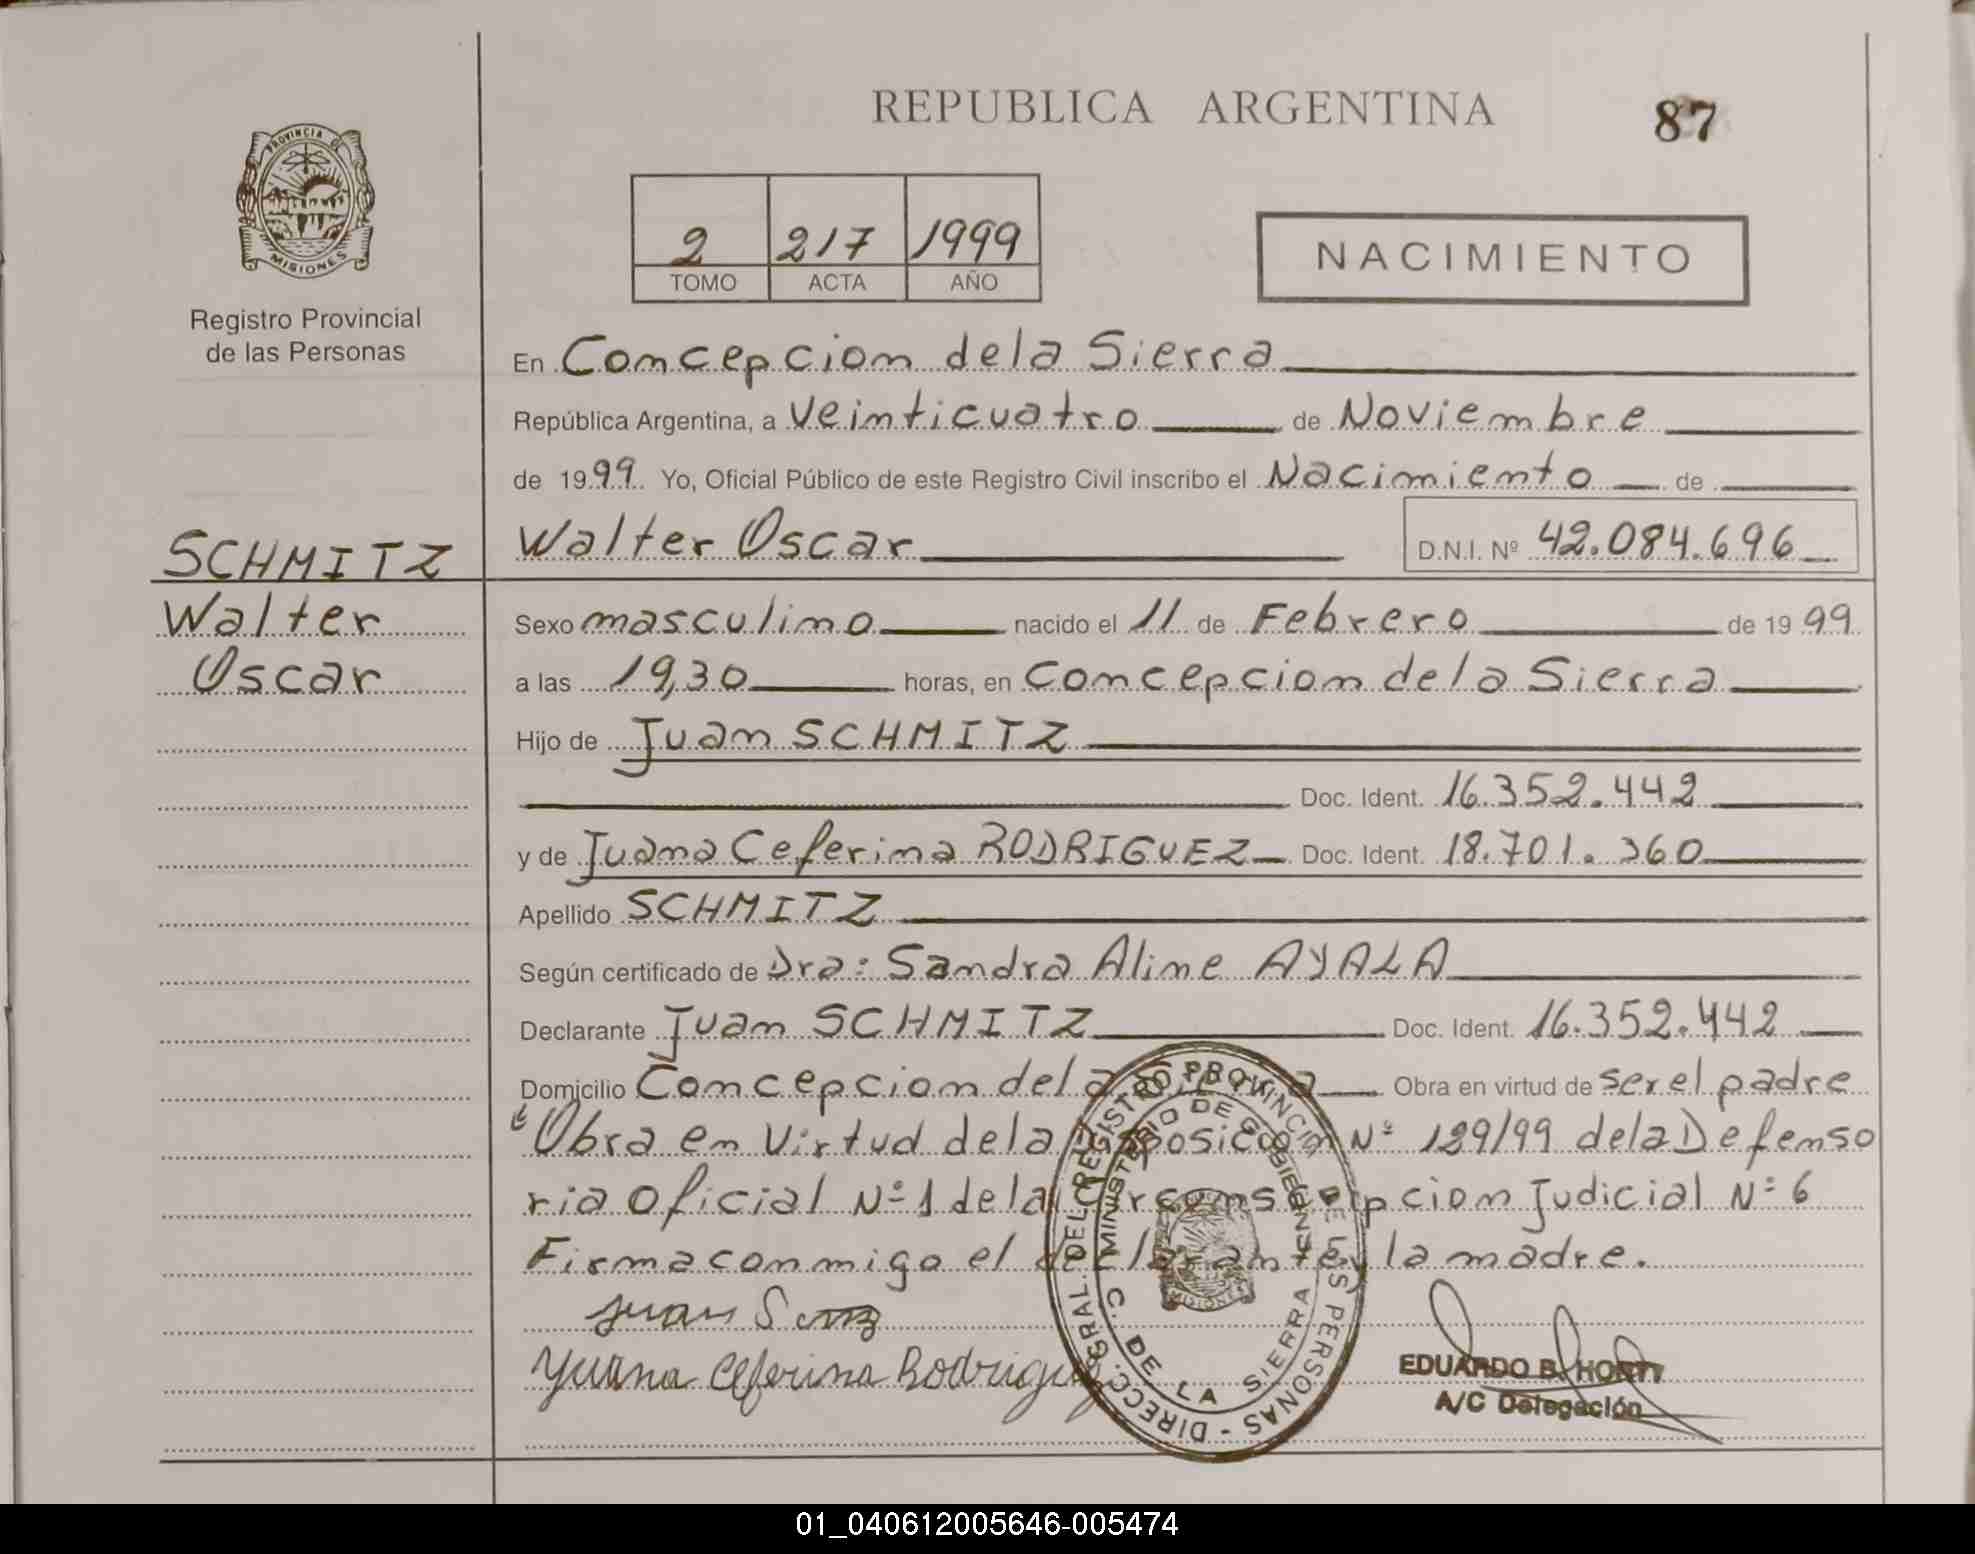 REPUBLICA ARGENTINA
87
PROVINCIA DE
MISIONES
Registro Provincial
de las Personas
2 217 1999
TOMO ACTA AÑO
NACIMIENTO
En Concepcion de la Sierra
República Argentina, a Veinticuatro de Noviembre
de 1999. Yo, Oficial Público de este Registro Civil inscribo el Nacimiento de
SCHMITZ
Walter
Oscar
Walter Oscar D.N.I. Nº 42.084.696
Sexo masculino nacido el 11 de Febrero de 1999
a las 19,30 horas, en Concepcion de la Sierra
Hijo de Juan SCHMITZ
Doc. Ident. 16.352.442
y de Juana Ceferina RODRIGUEZ Doc. Ident. 18.701.360
Apellido SCHMITZ
Según certificado de Dra: Sandra Aline AYALA
Declarante Juan SCHMITZ Doc. Ident. 16.352.442
Domicilio Concepcion de la Obra en virtud de ser el padre
Obra en Virtud de la Nº 129/99 de la Defenso
ria Oficial Nº 1 de la Circunscripcion Judicial Nº 6
Firma conmigo el declarante y la madre.
Juan
Yuana Ceferina Rodriguez
DIRECC. GRAL. DEL REGISTRO PROVINCIAL DE LAS PERSONAS -
MINISTERIO DE GOBIERNO
C. DE LA SIERRA
MISIONES
EDUARDO B. HORTT
A/C Delegación
01_040612005646-005474